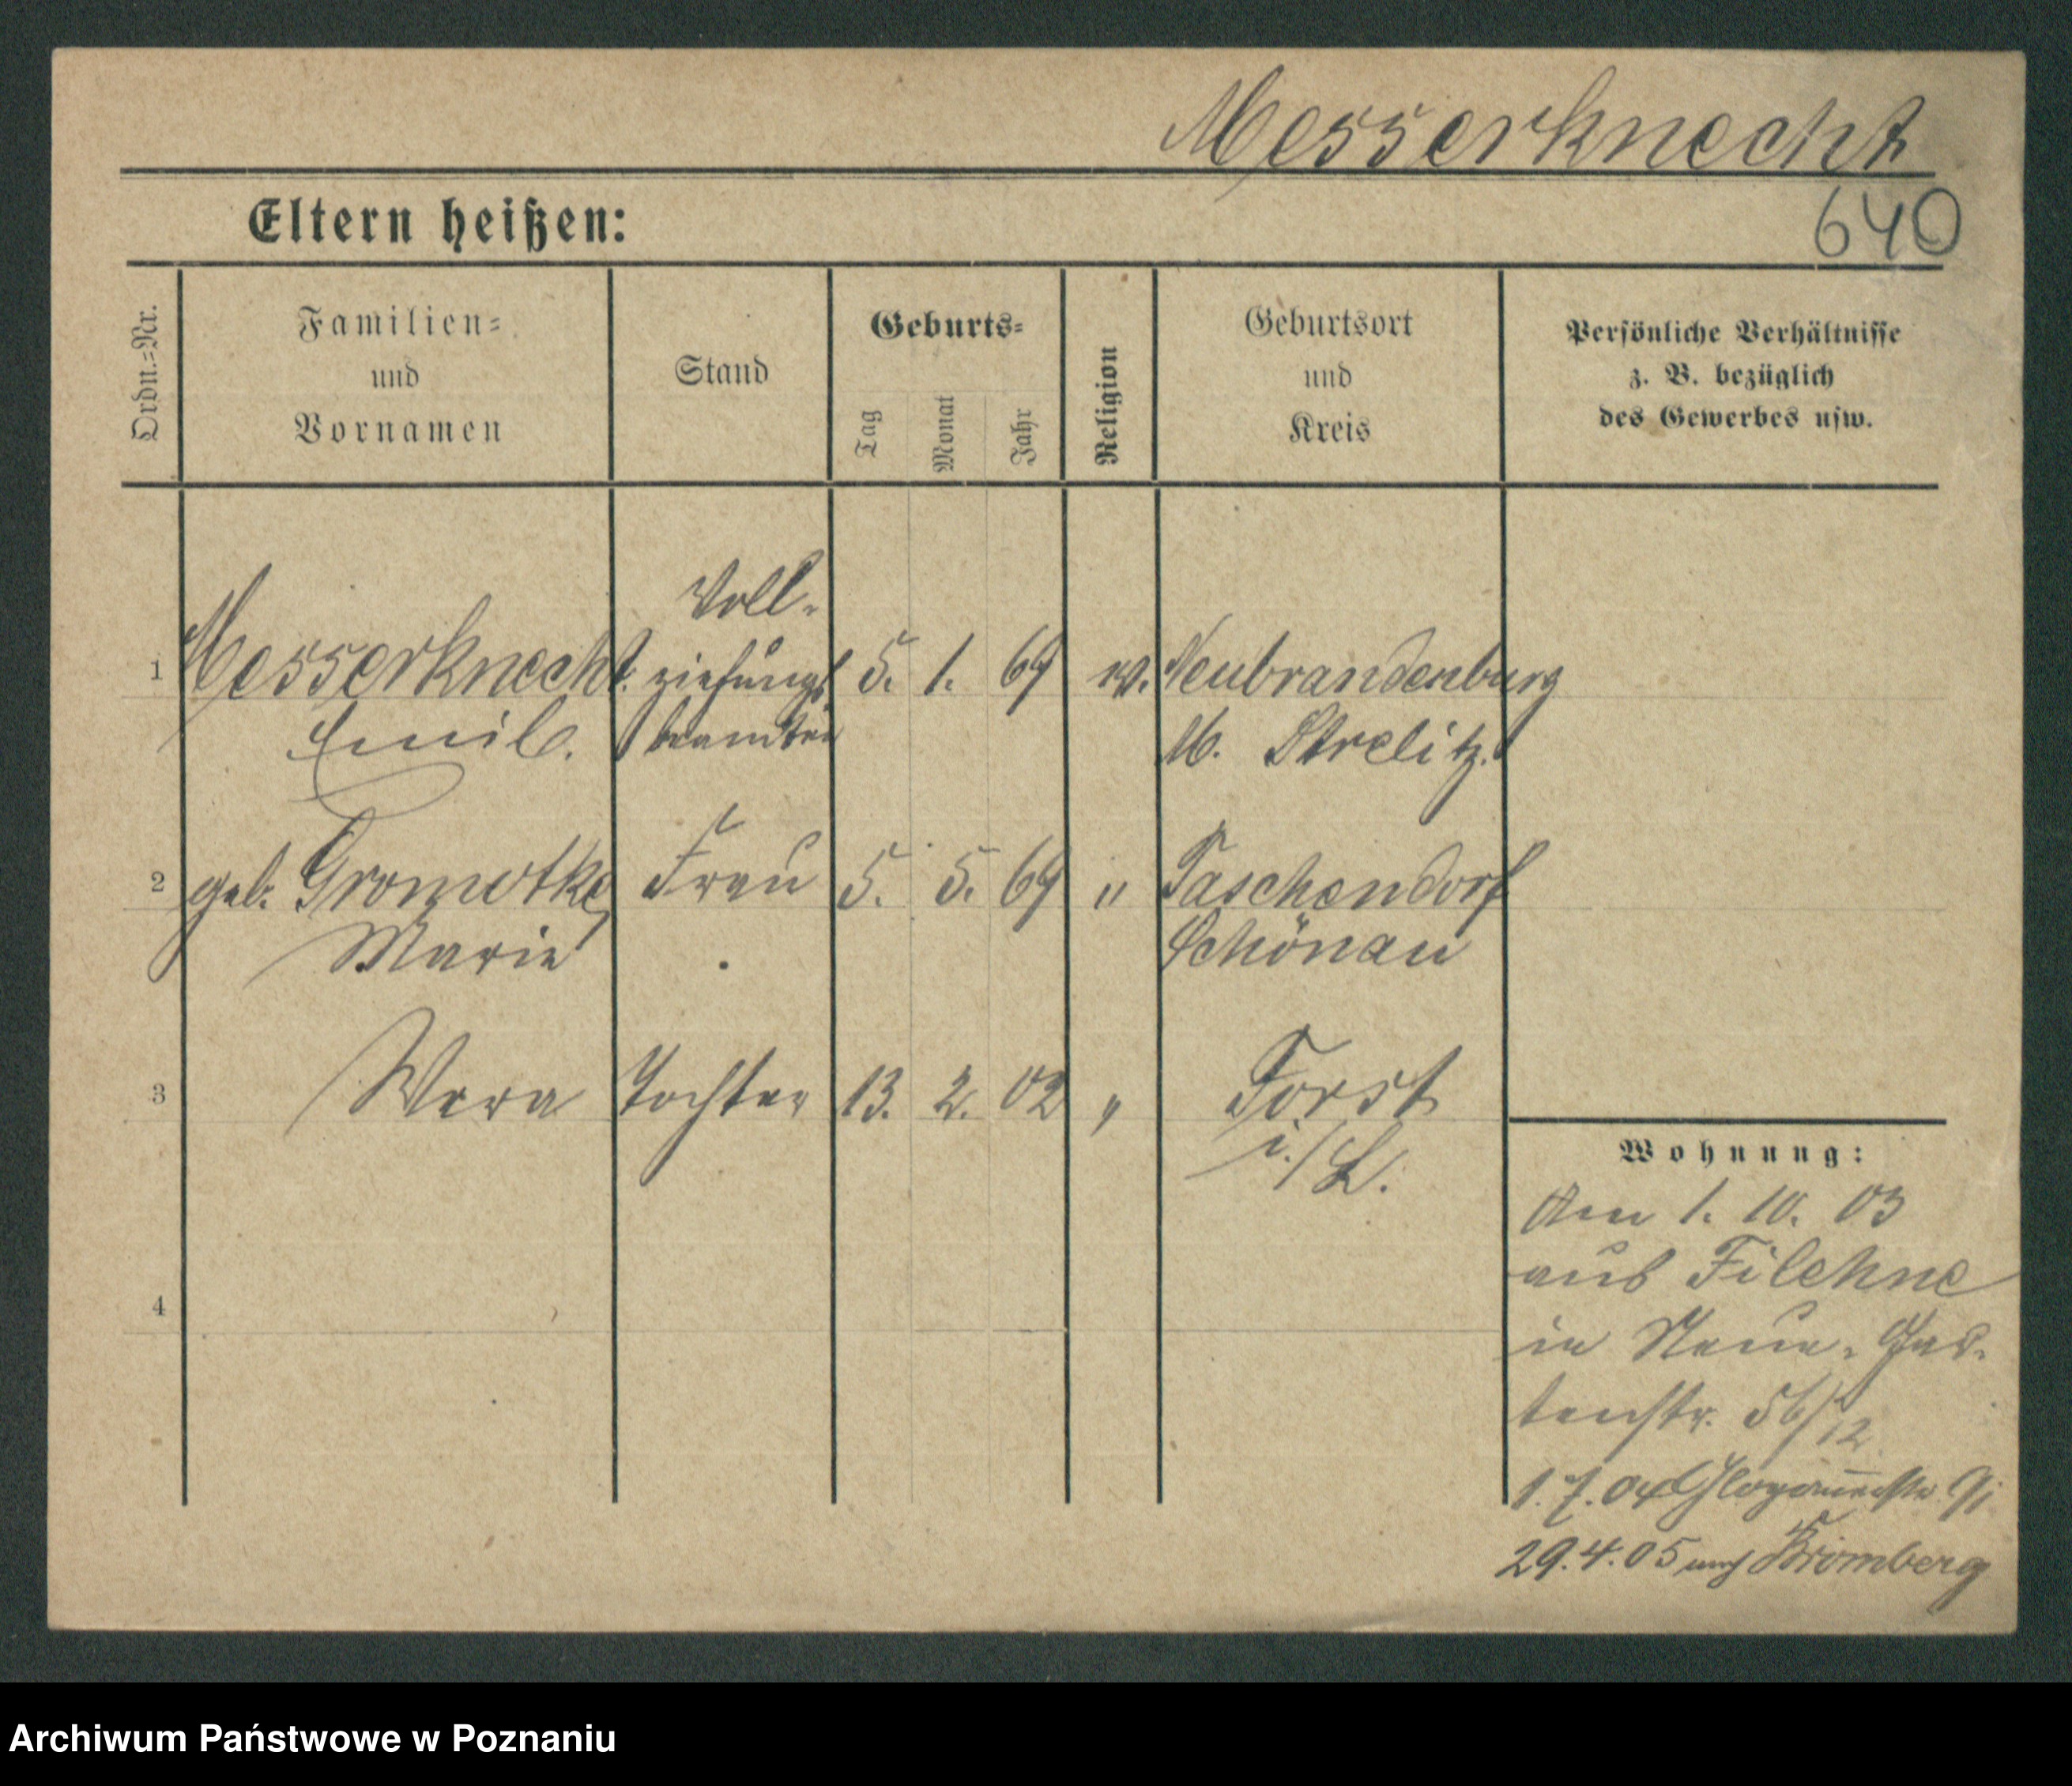 Messerknecht
640
Eltern heißen:
Ordn.-Nr.
Familien-
und
Vornamen
Stand
Geburts-
Tag
Monat
Jahr
Religion
Geburtsort
und
Kreis
Persönliche Verhältnisse
z. B. bezüglich
des Gewerbes usw.
Voll-
1 Messerknecht. ziehungs 5. 1. 69 Neubrandenburg
Emil. beamter M. Strelitz.
2 geb. Gromotke Frau 5. 5. 69 " Taschendorf
Marie Schönau
3 Wera Tochter 13. 2. 02 " Forst
i./L.
4
Wohnung:
Am 1. 10. 03
aus Filehne
in Neue-Gar-
tenstr. 56/12
1. 7. 04 Glogauerstr. 91
29. 4. 05 nach Bromberg
Archiwum Państwowe w Poznaniu